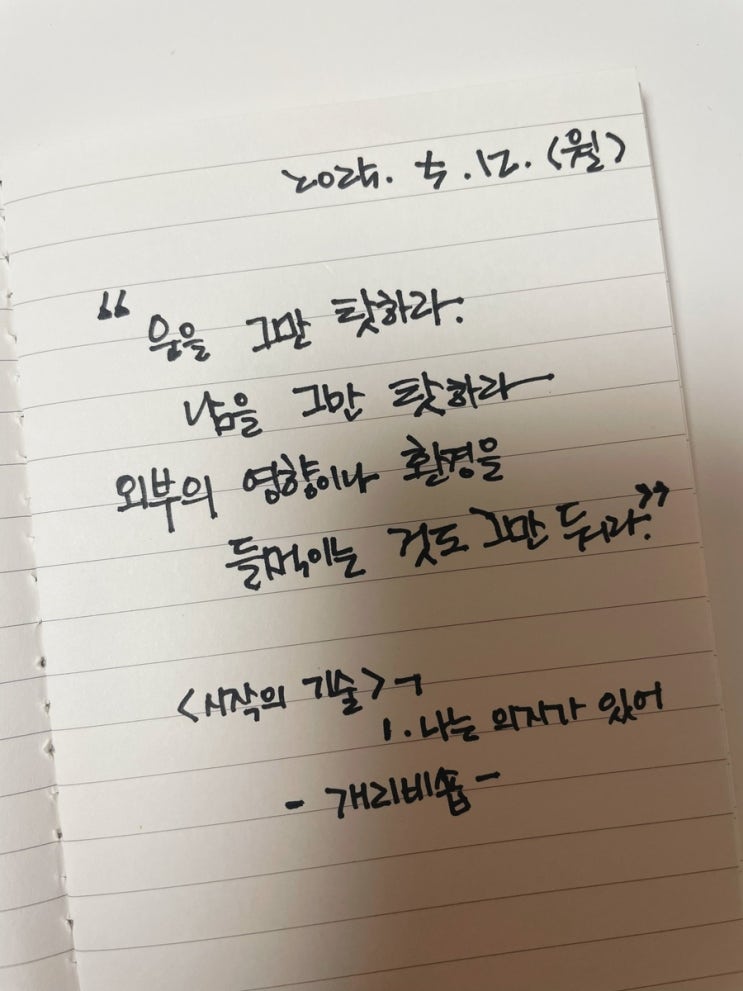 2025. 5. 12. (월)
“운을 그만 탓하라.
남을 그만 탓하라
외부의 영향이나 환경을
들먹이는 것도 그만 두라.”
<시작의 기술> ㄱ
1. 나는 의지가 있어
- 개리비숍 -